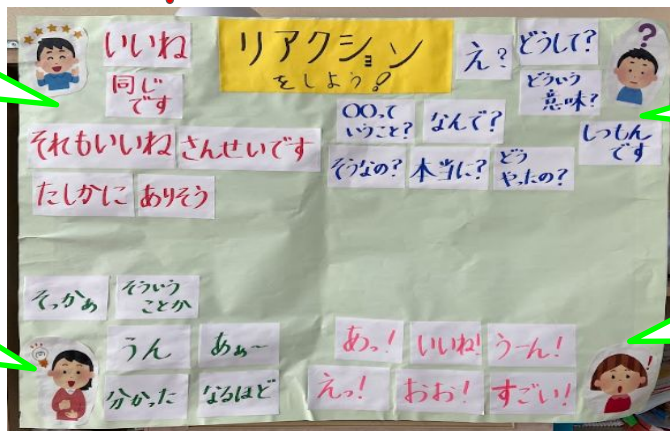 リアクション
をしよう!
いいね
同じ
です
それもいいね
さんせいです
たしかに
ありそう
え?
どうして?
どういう
意味?
〇〇って
いうこと?
なんで?
しつもん
です
そうなの?
本当に?
どう
やったの?
そっかぁ
そういう
ことか
うん
あぁ〜
分かった
なるほど
あっ!
いいね!
うーん!
えっ!
おお!
すごい!